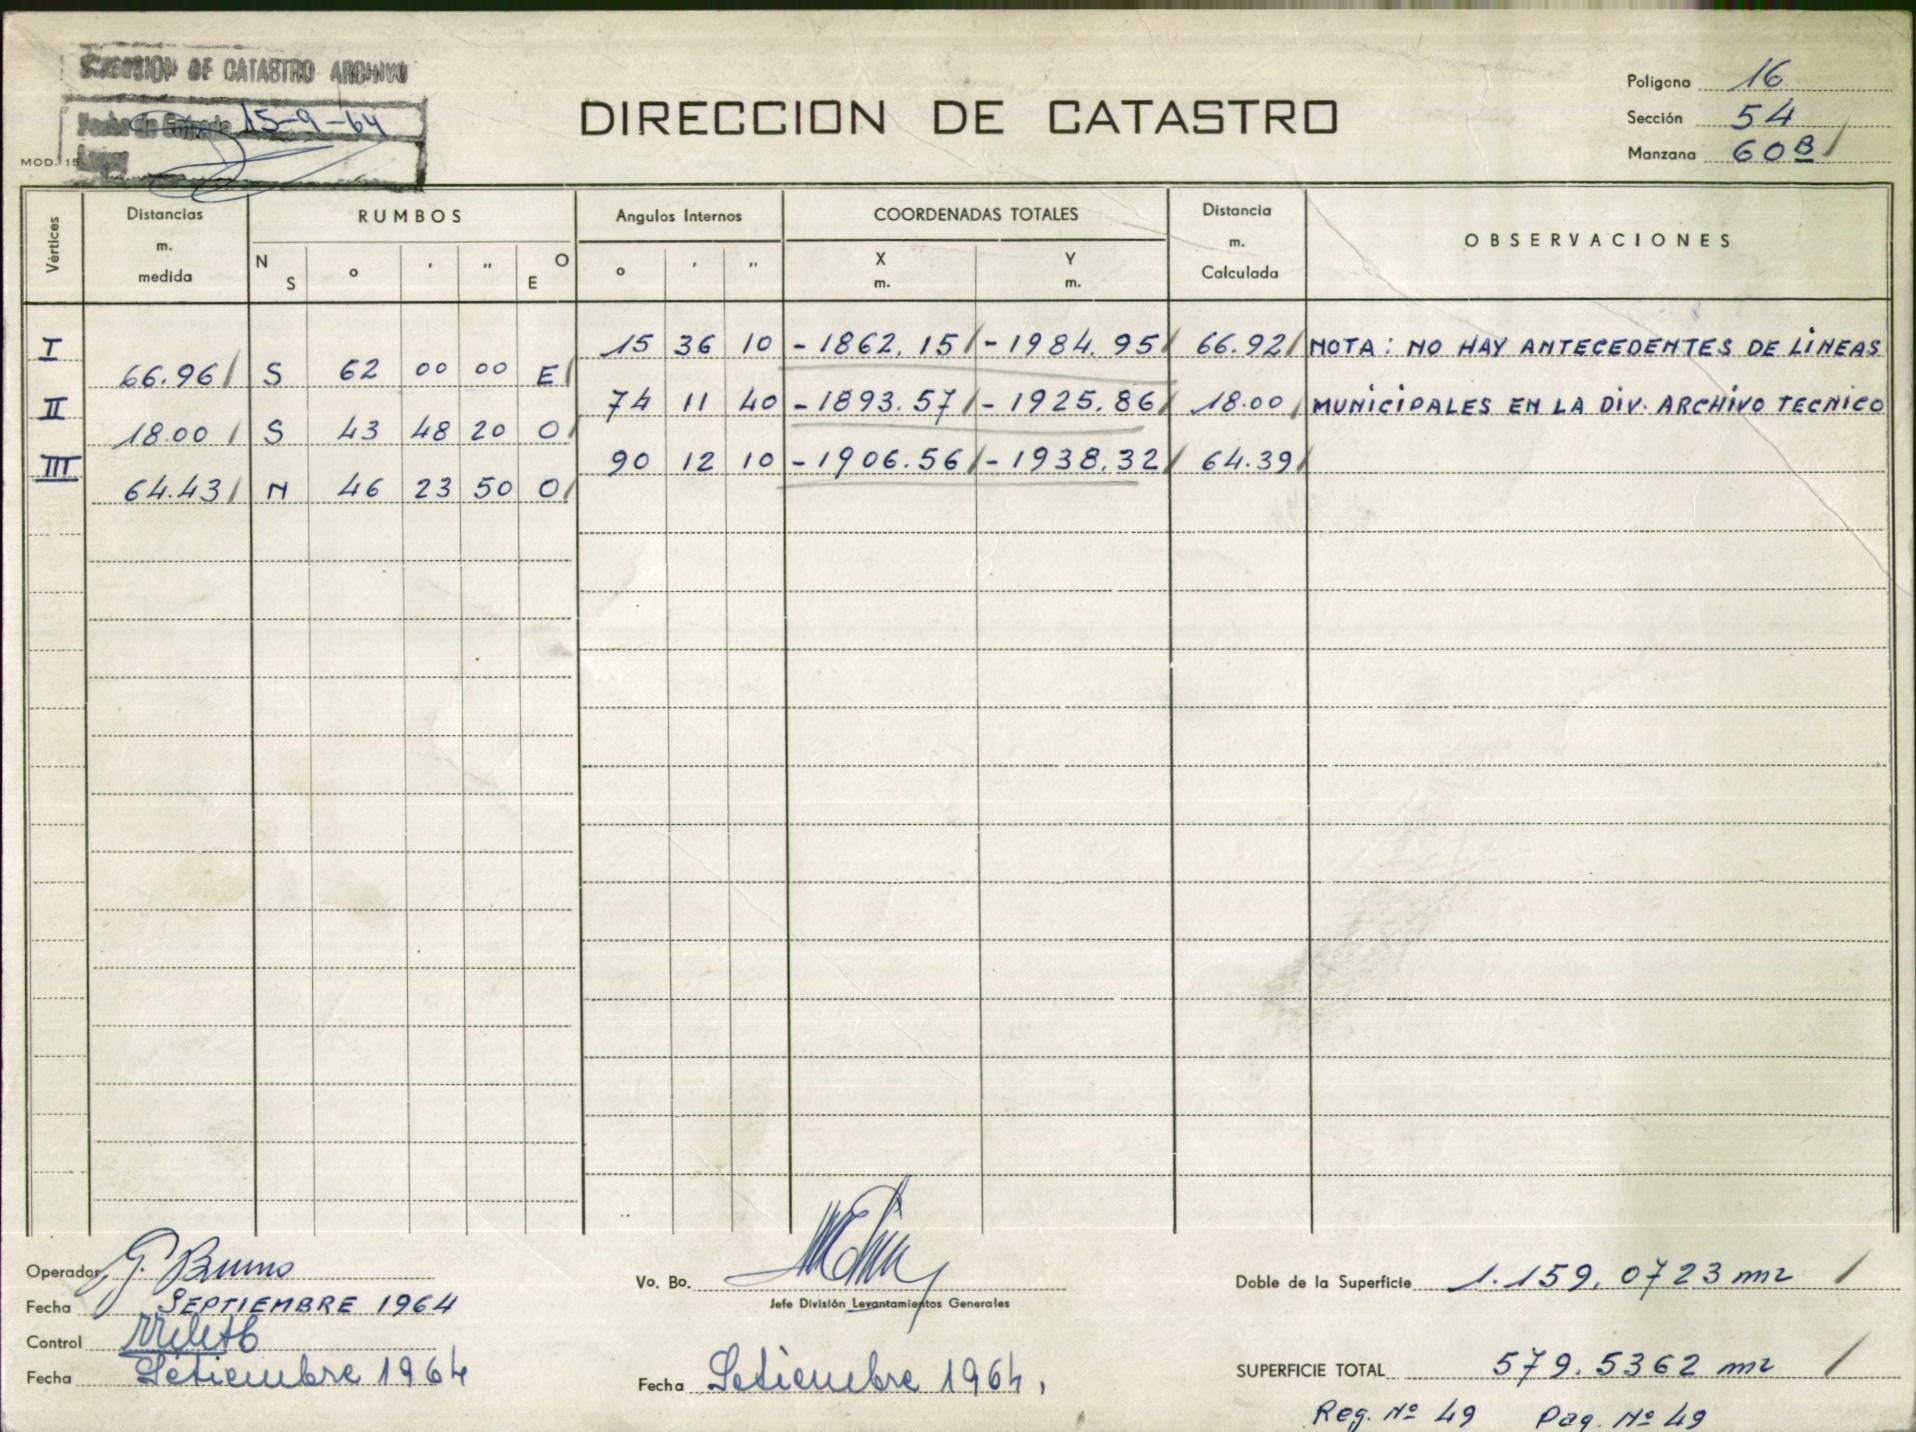 SECCION DE CATASTRO ARCHIVO
Fecha de Entrada 15-9-64
MOD. 15
DIRECCION DE CATASTRO
Polígono 16
Sección 54
Manzana 60B
Vértices
Distancias m. medida
RUMBOS
N S ° ' " O E
Angulos Internos
° ' "
COORDENADAS TOTALES
X m. Y m.
Distancia m. Calculada
OBSERVACIONES
I 15 36 10 -1862.15 -1984.95 66.92 NOTA: NO HAY ANTECEDENTES DE LINEAS
66.96 S 62 00 00 E
II 74 11 40 -1893.57 -1925.86 18.00 MUNICIPALES EN LA DIV. ARCHIVO TECNICO
18.00 S 43 48 20 O
III 90 12 10 -1906.56 -1938.32 64.39
64.43 N 46 23 50 O
Operador G. Bruno
Fecha SEPTIEMBRE 1964
Control
Fecha Setiembre 1964
Vo. Bo.
Jefe División Levantamientos Generales
Fecha Setiembre 1964.
Doble de la Superficie 1.159,0723 m2
SUPERFICIE TOTAL 579.5362 m2
Reg. Nº 49 Pag. Nº 49